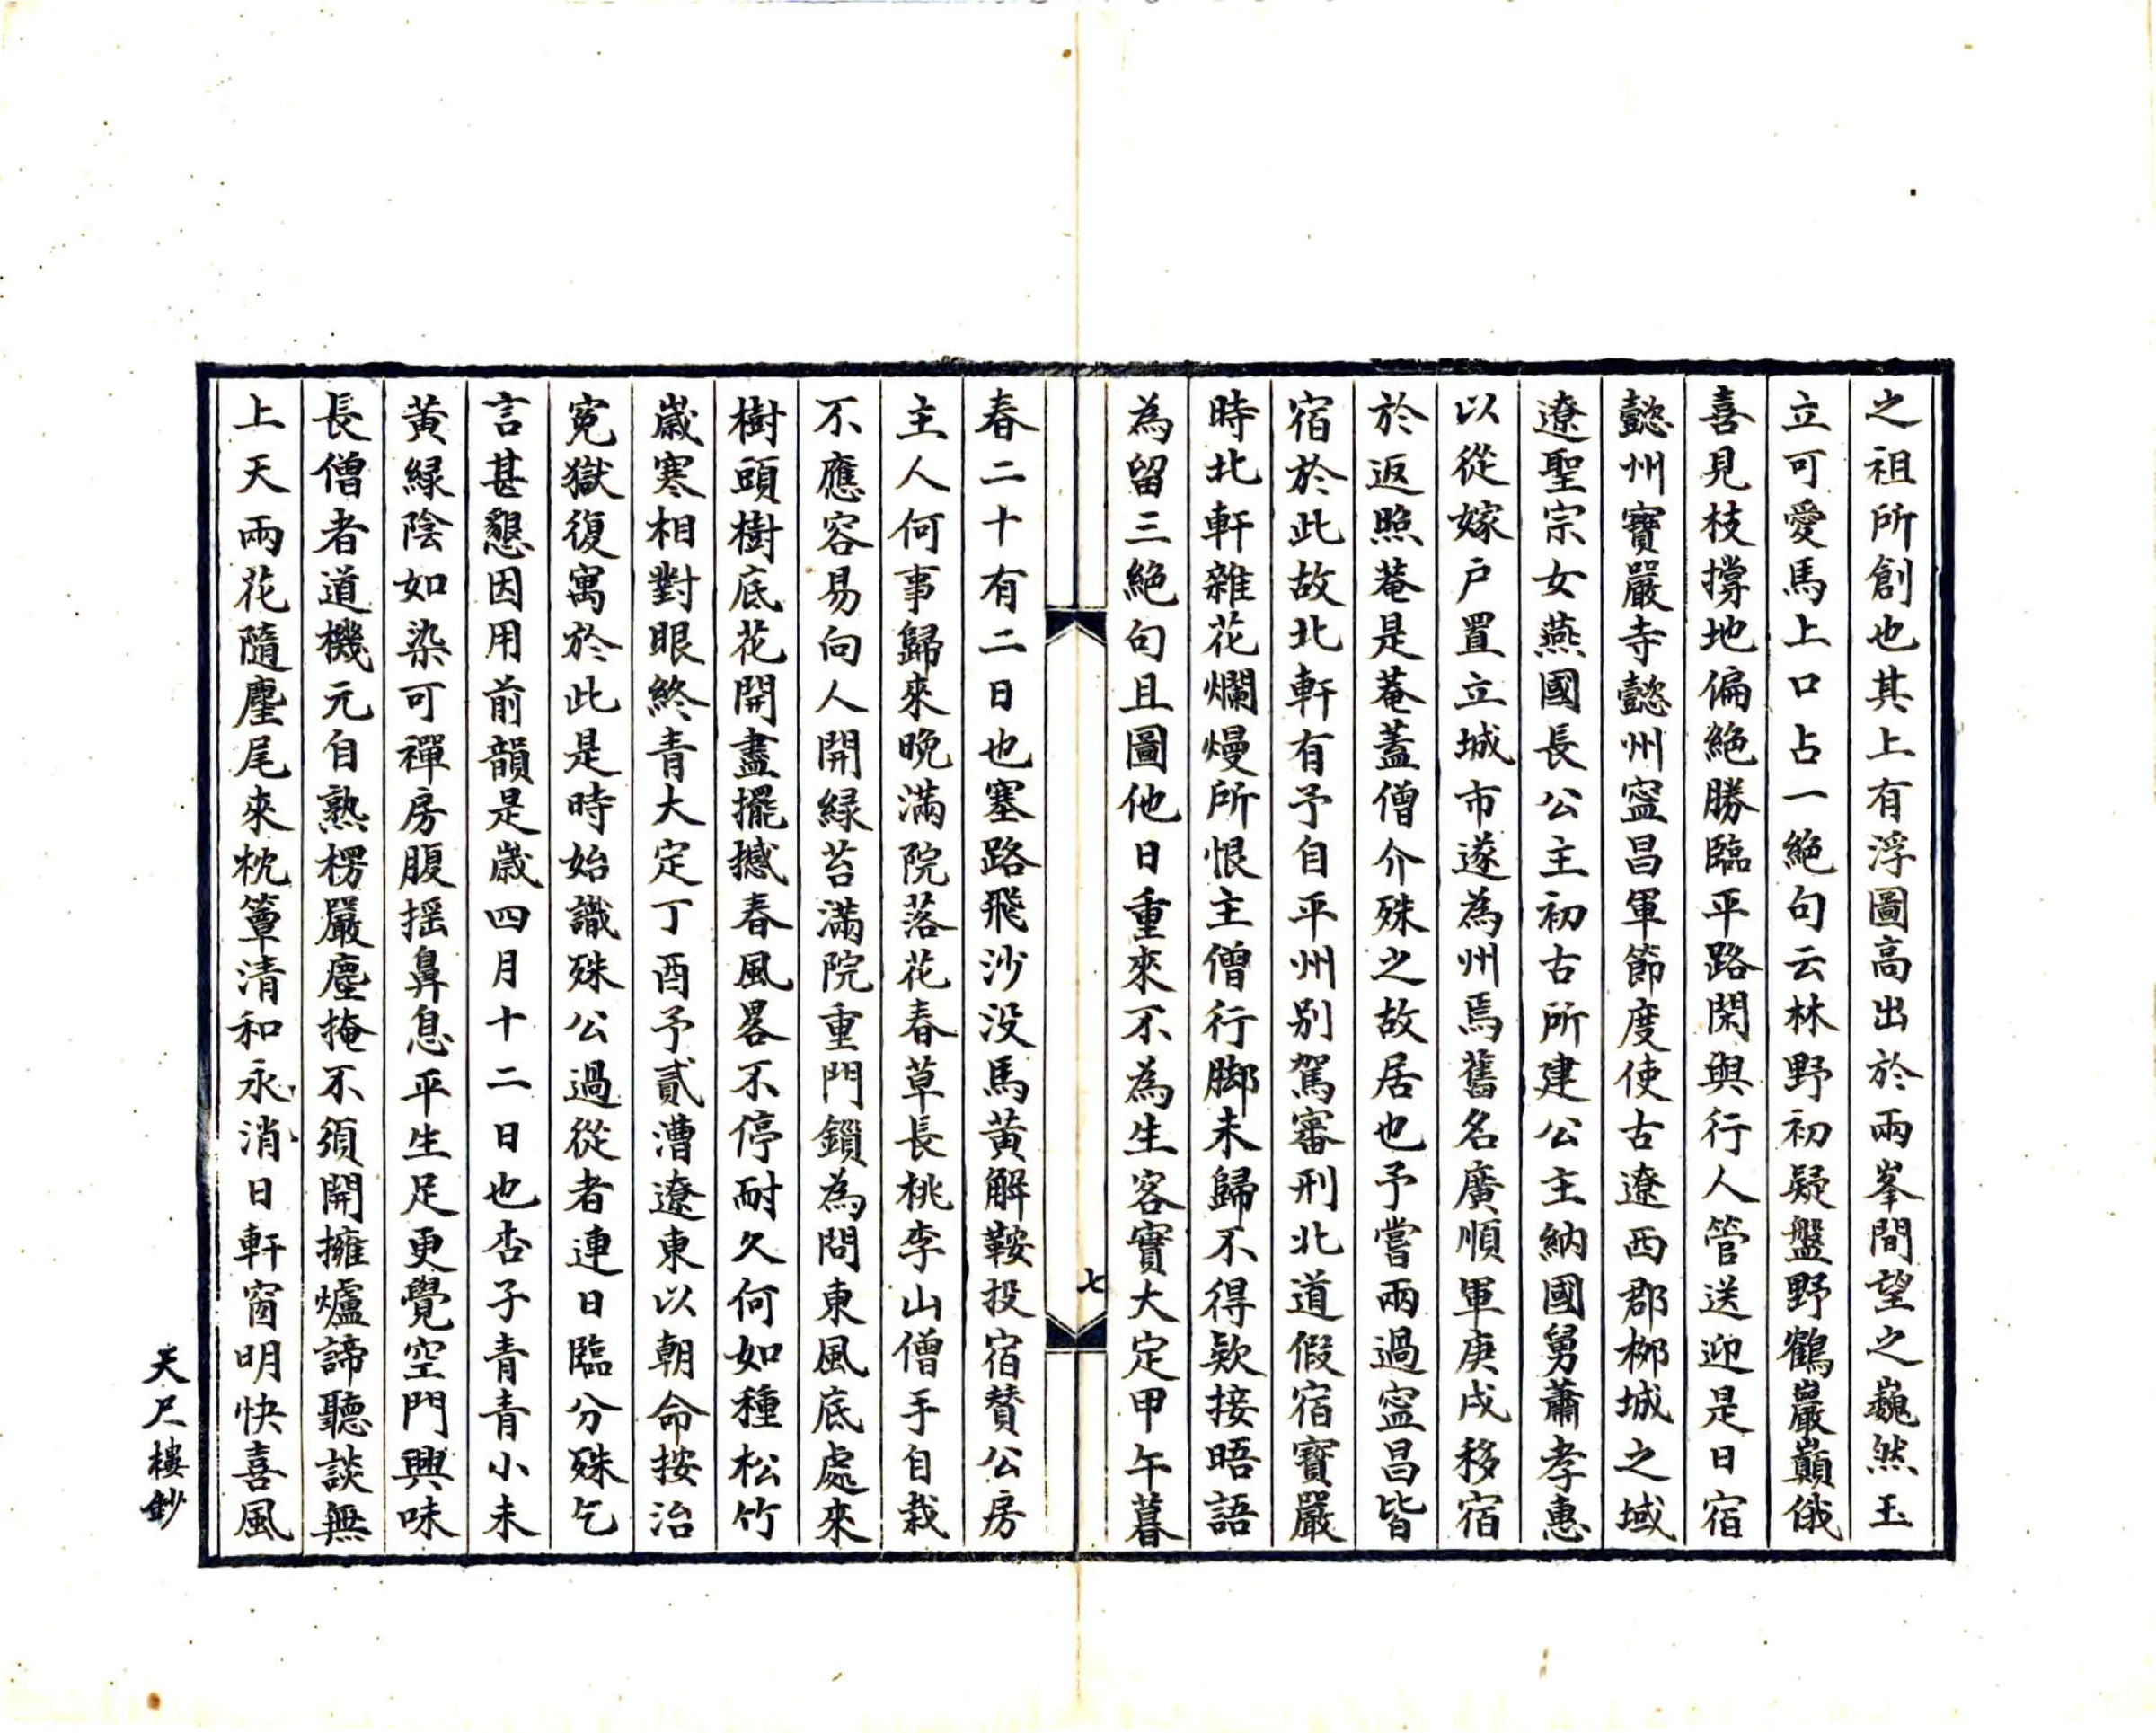 之祖所創也其上有浮圖高出於兩峯間望之巍然玉
立可愛馬上口占一絕句云林野初疑盤野鶴巖巔俄
喜見枝撐地偏絕勝臨平路閑與行人管送迎是日宿
懿州寶嚴寺懿州寧昌軍節度使古遼西郡柳城之域
遼聖宗女燕國長公主初古所建公主納國舅蕭孝惠
以從嫁戶置立城市遂為州焉舊名廣順軍庚戌移宿
於返照菴是菴蓋僧介殊之故居也予嘗兩過寧昌皆
宿於此故北軒有予自平州別駕審刑北道假宿寶嚴
時北軒雜花爛熳所恨主僧行脚未歸不得欵接晤語
為留三絕句且圖他日重來不為生客實大定甲午暮
七
春二十有二日也塞路飛沙没馬黃解鞍投宿贊公房
主人何事歸來晚滿院落花春草長桃李山僧手自栽
不應容易向人開緑苔滿院重門鎖為問東風底處來
樹頭樹底花開盡擺撼春風畧不停耐久何如種松竹
歲寒相對眼終青大定丁酉予貳漕遼東以朝命按治
冤獄復寓於此是時始識殊公過從者連日臨分殊乞
言甚懇因用前韻是歲四月十二日也杏子青青小未
黃緑陰如染可禪房腹摇鼻息平生足更覺空門興味
長僧者道機元自熟楞嚴塵掩不須開擁爐諦聽談無
上天雨花隨麈尾來枕簟清和永消日軒窗明快喜風
天尺樓鈔